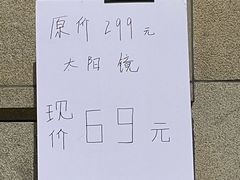 原价299元
太阳镜
现价69元